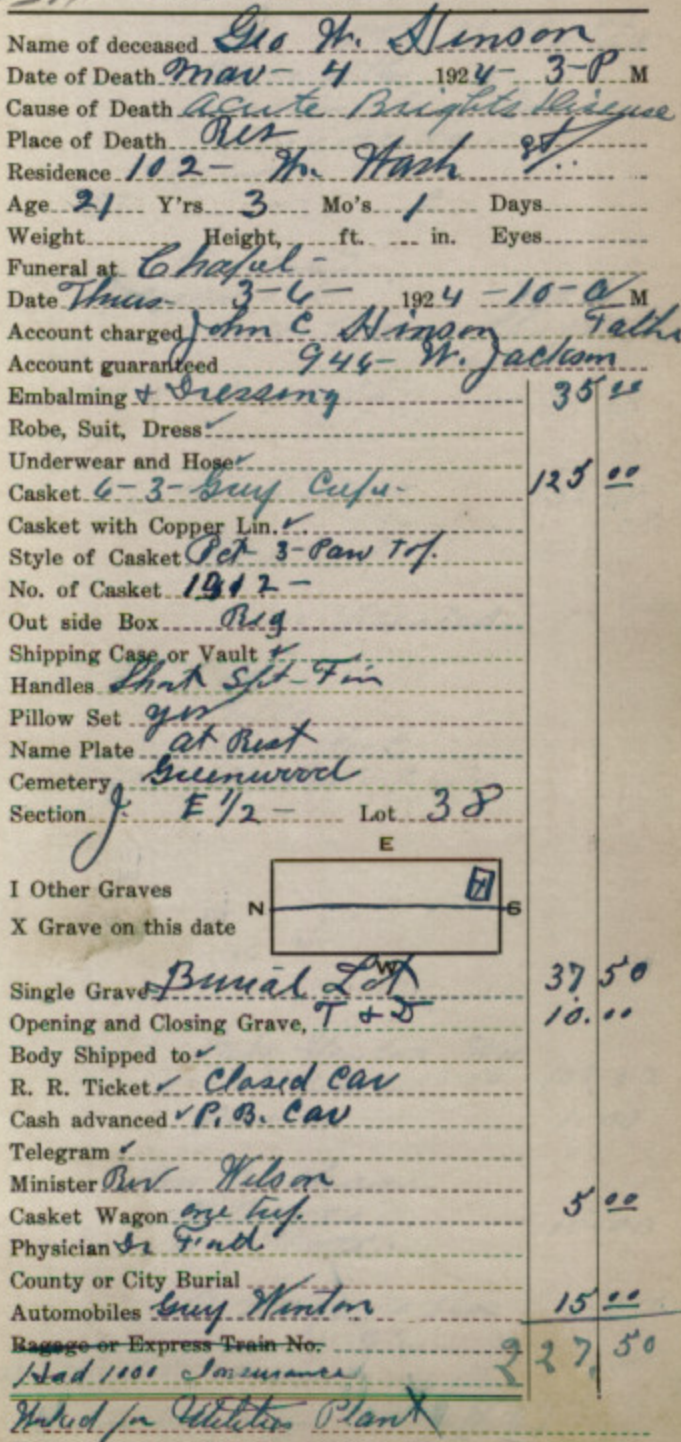 Name of deceased Geo W. Hinson
Date of Death Mar - 4 1924 - 3-P M
Cause of Death Acute Brights Disease
Place of Death Res
Residence 102 - W. Wash St.
Age 21 Y'rs 3 Mo's 1 Days
Weight Height, ft. in. Eyes
Funeral at Chapel -
Date Thurs - 3-6- 1924 - 10-a M
Account charged John C Hinson Father
Account guaranteed 946 - W. Jackson
Embalming & Dressing 35 00
Robe, Suit, Dress ✓
Underwear and Hose ✓
Casket 6-3- Grey 125 00
Casket with Copper Lin. ✓
Style of Casket Oct 3-Pan Top.
No. of Casket 1912 -
Out side Box Reg
Shipping Case or Vault ✓
Handles Short
Pillow Set yes
Name Plate At Rest
Cemetery Greenwood
Section J. E 1/2 - Lot 38
E
I Other Graves
N S
X Grave on this date
W
Single Grave Burial Lot 37 50
Opening and Closing Grave, T & D 10.00
Body Shipped to ✓
R. R. Ticket ✓ Closed Car
Cash advanced ✓ P. B. Car
Telegram ✓
Minister Rev Wilson
Casket Wagon 5 00
Physician Dr
County or City Burial
Automobiles Guy Winton 15 00
Bagage or Express Train No. 227 50
Had 1000 Insurance
Worked for Utilities Plant